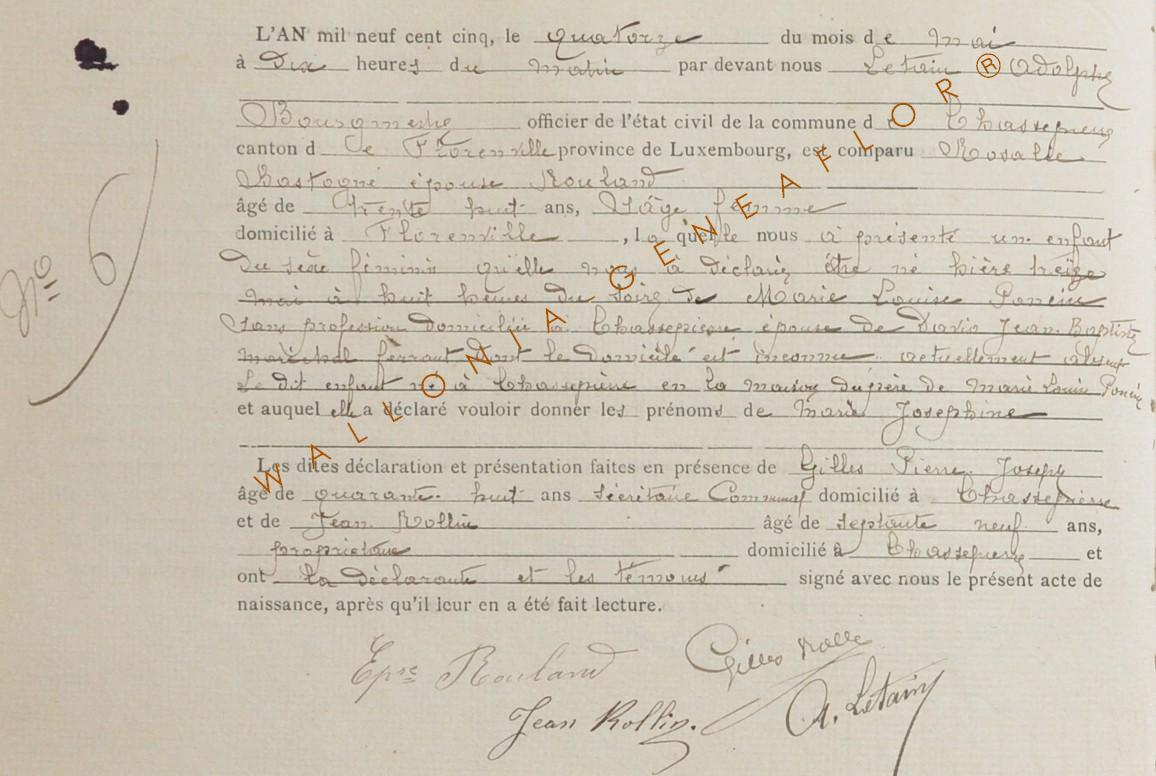 L'AN mil neuf cent cinq, le quatorze du mois de Mai
à Dix heures du Matin par devant nous Letain Adolphe
Bourgmestre officier de l'état civil de la commune de Chassepierre
canton de Florenville province de Luxembourg, est comparu Rosalie
Bastogne épouse Rouland
âgé de trente huit ans, Sage femme
domicilié à Florenville, laquelle nous a présenté un enfant
Du sexe féminin qu'elle nous a déclaré être né hière treize
Mai à huit heures du Soire de Marie Louise Poncin
Sans profession Domiciliée à Chassepierre épouse de David Jean Baptiste
Maréchal ferrant dont le domicile est inconnu actuellement absent
Le dit enfant né à Chassepierre en la maison du père de Marie Louise Poncin
et auquel elle a déclaré vouloir donner les prénoms de Marie Josephine
Les dites déclaration et présentation faites en présence de Gilles Pierre Joseph
âgé de quarante huit ans Sécrétaire Communal domicilié à Chassepierre
et de Jean Rollin âgé de septante neuf ans,
propriétaire domicilié à Chassepierre et
ont la déclarante et les témoins signé avec nous le présent acte de
naissance, après qu'il leur en a été fait lecture.
N° 6
Epse Rouland Gilles
Jean Rollin. A. Letain
WALLONIA GENEAFLOR ®